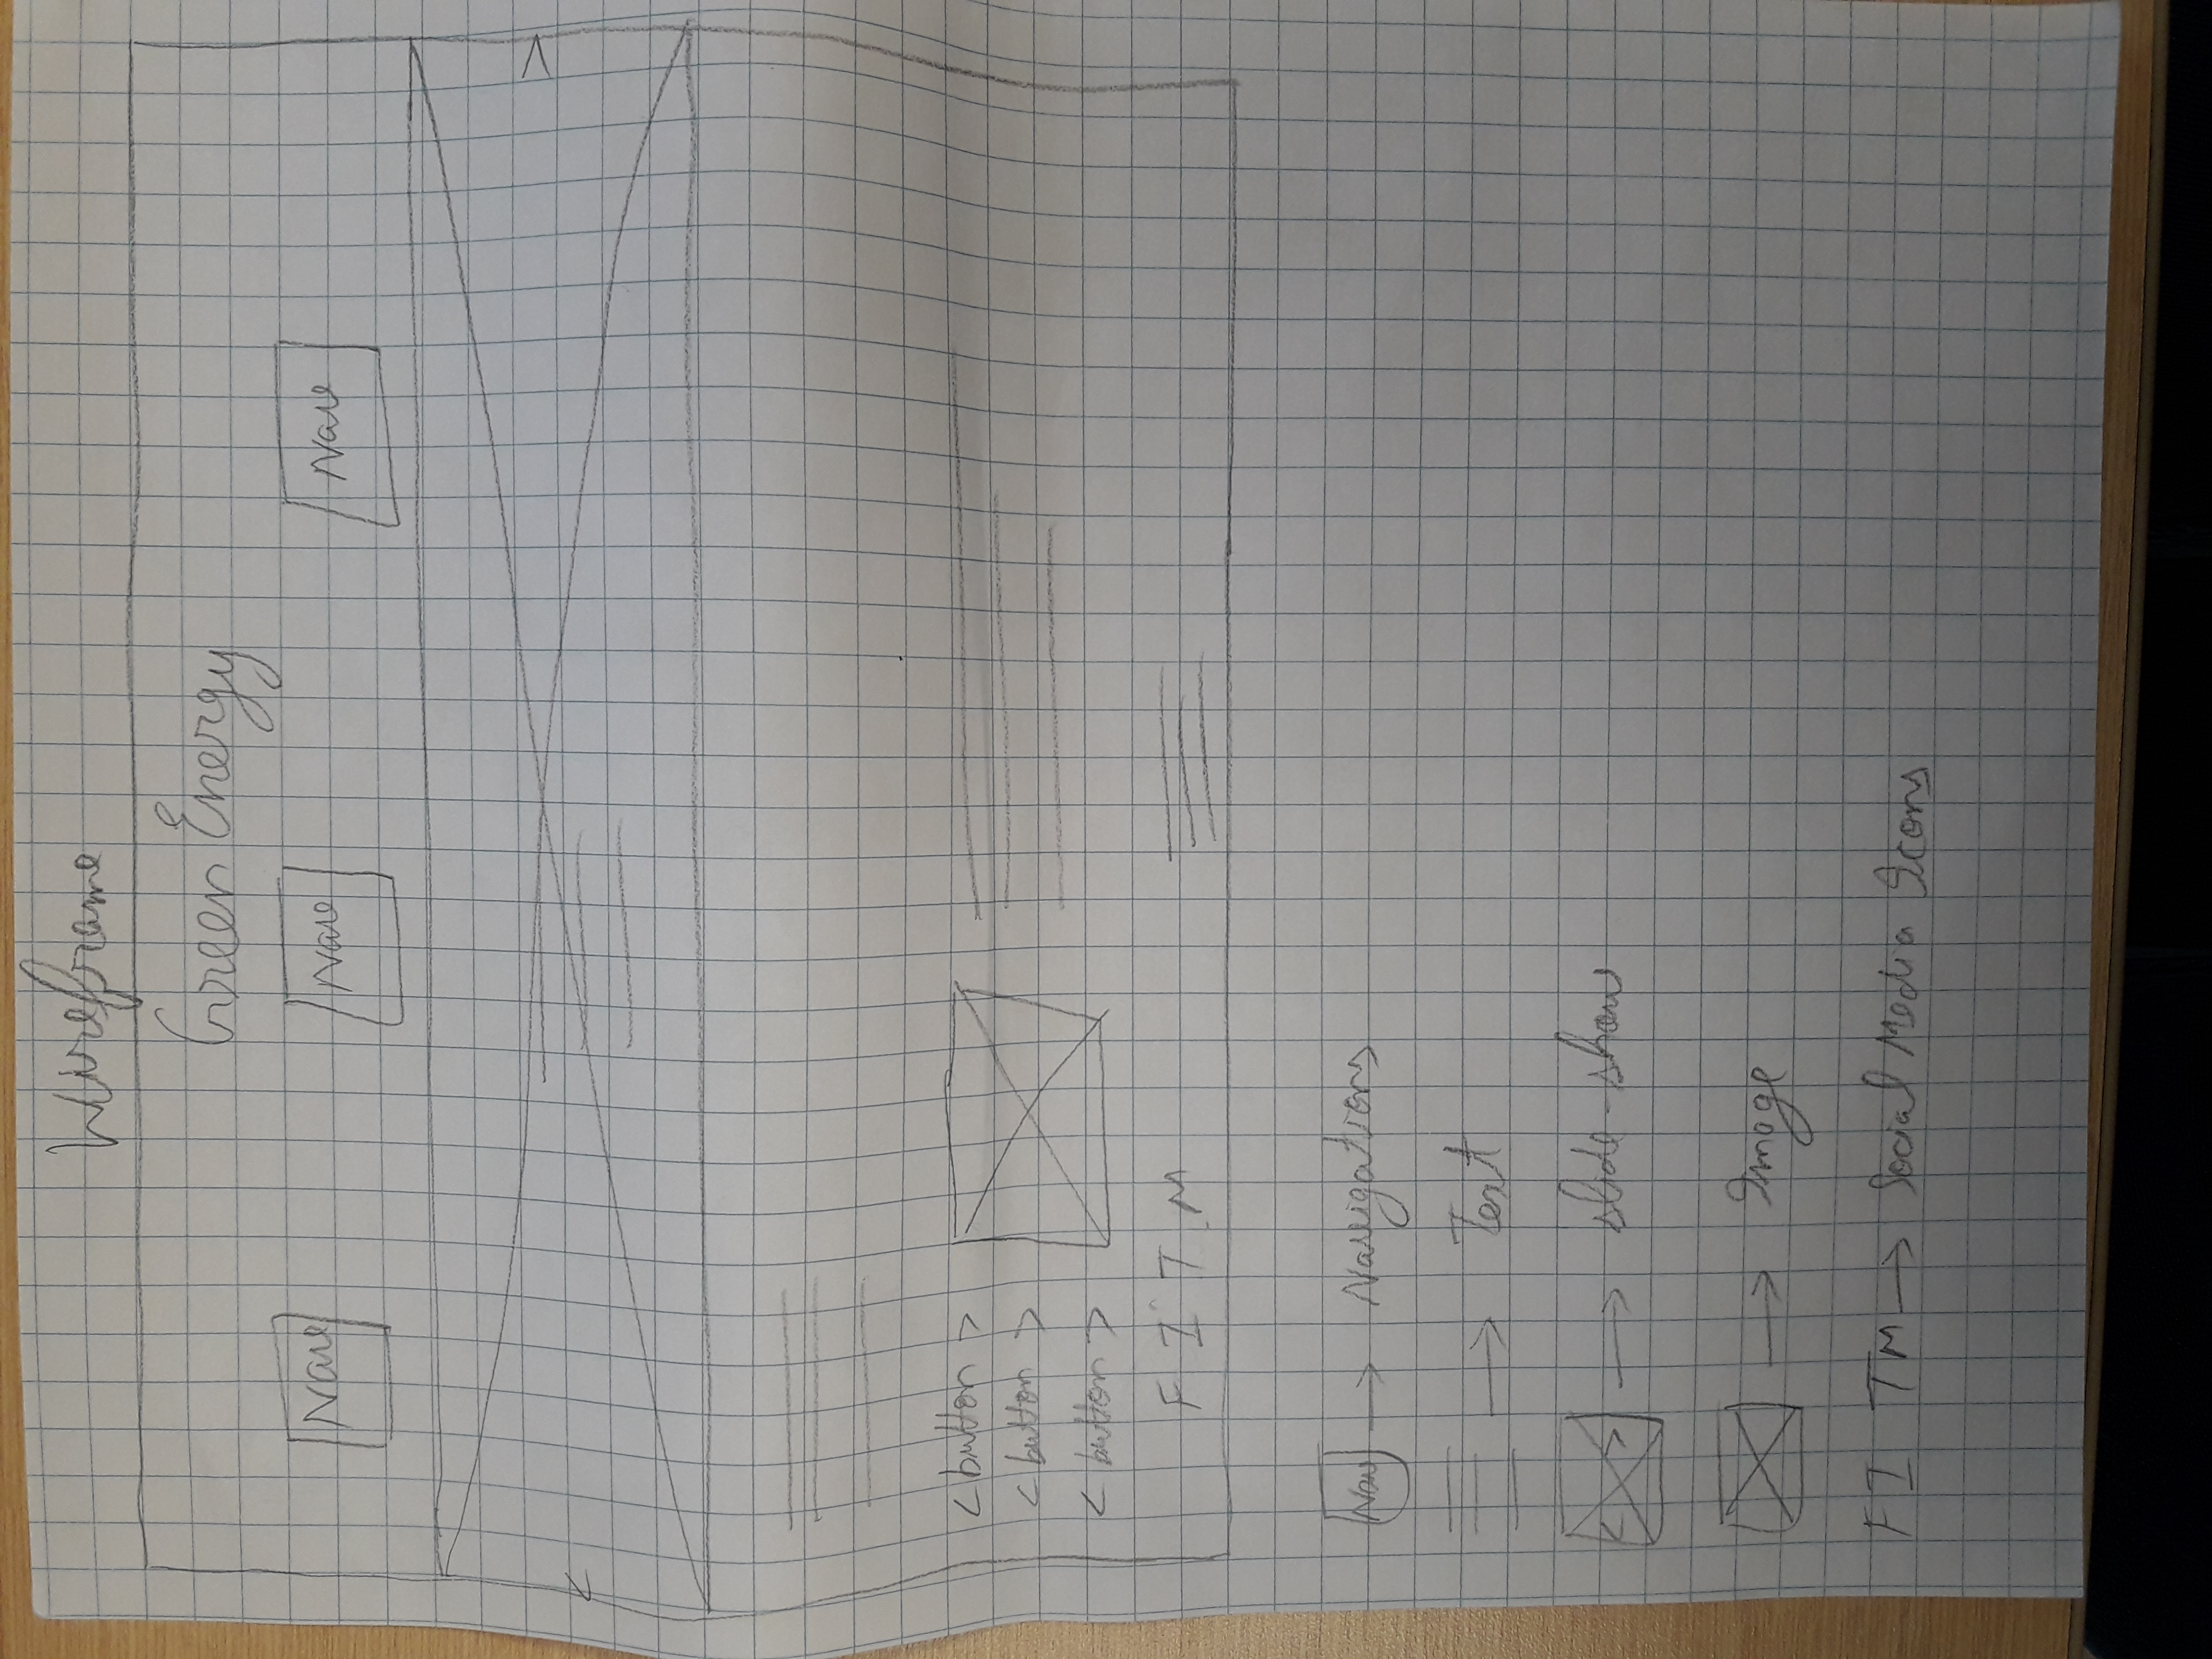 Wireframe
Green Energy
Nav Nav Nav
< >
< button >
< button >
< button >
F I T M
Nav → Navigations
→ Text
< > → slide-show
→ Image
F I T M → Social Media Icons